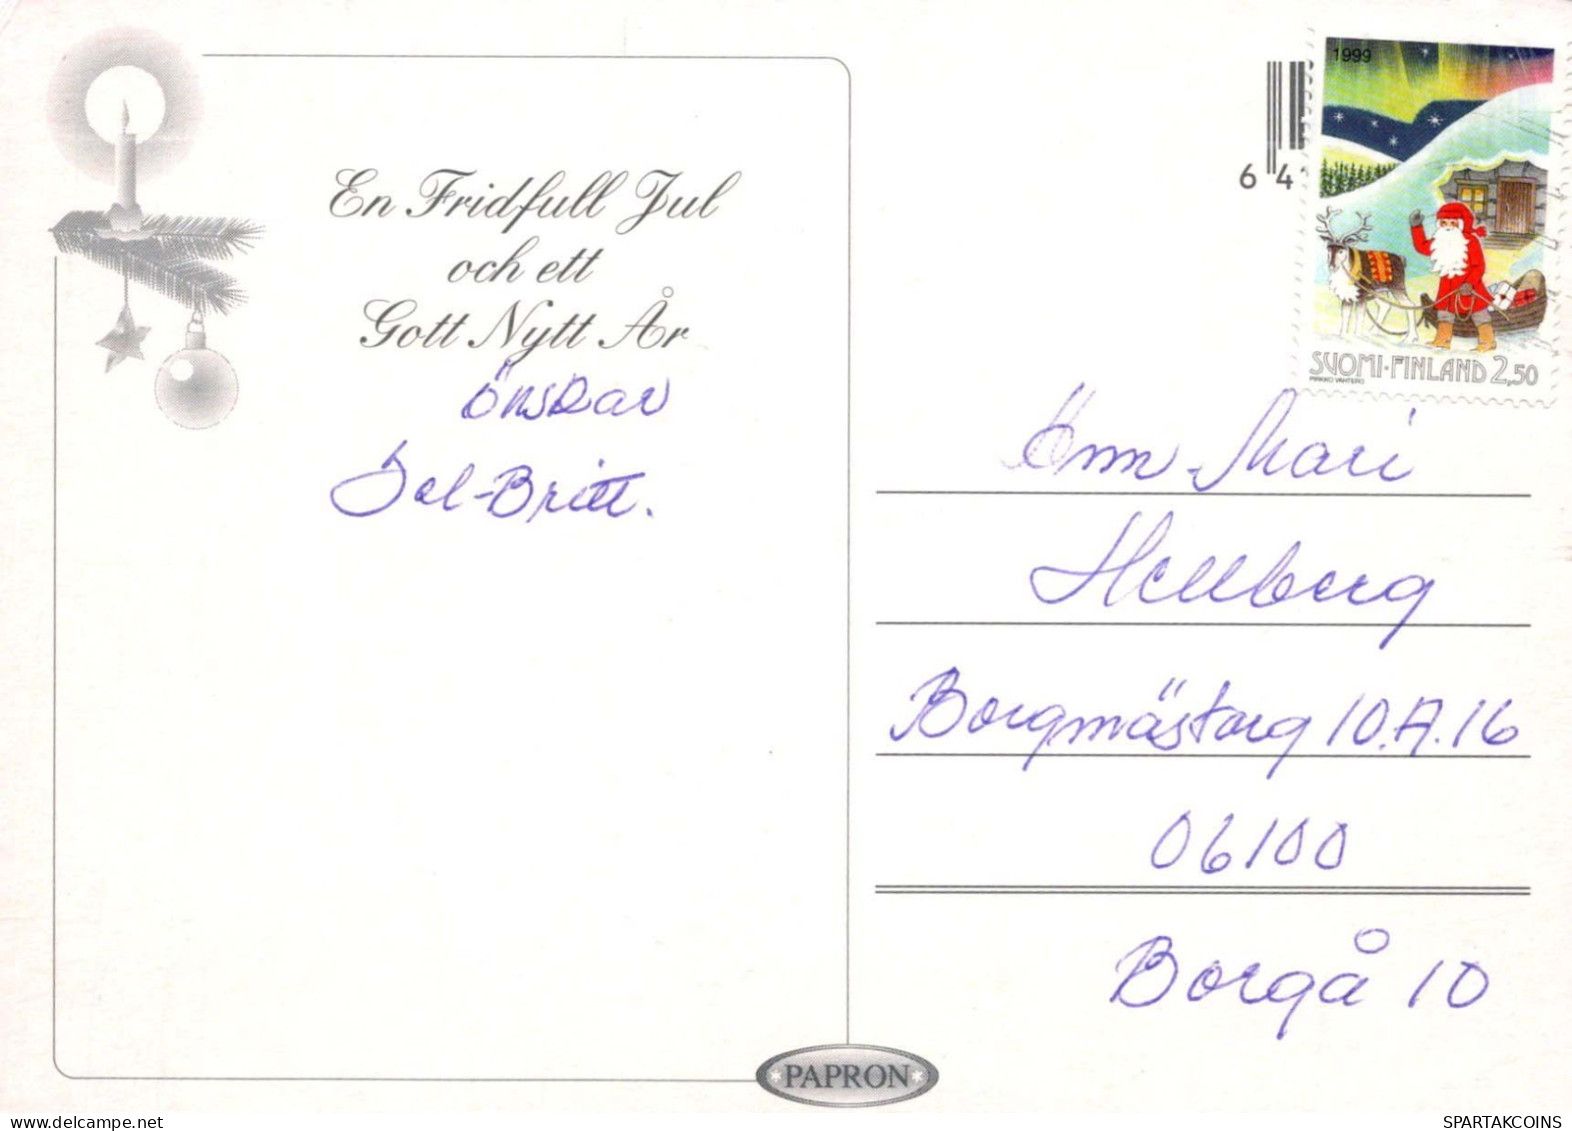 En Fridfull Jul
och ett
Gott Nytt År
önskar
Britt.
1999
SUOMI·FINLAND 2,50
PIRKKO VAHTERO
6 4
Ann-Mari
Hellberg
Borgmästarg 10.A.16
06100
Borgå 10
*PAPRON*
SPARTAKCOINS